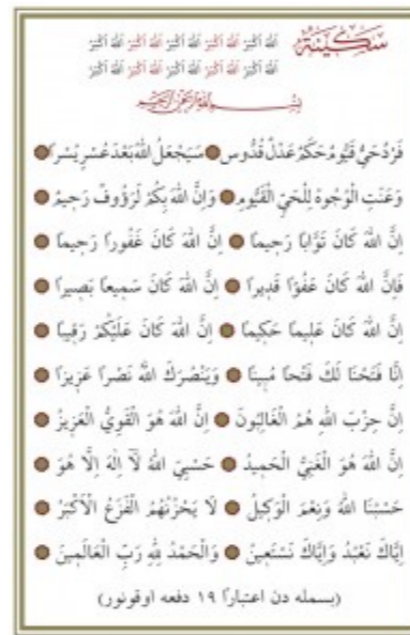 سَكِينَة
اَللهُ اَكْبَرُ اَللهُ اَكْبَرُ اَللهُ اَكْبَرُ اَللهُ اَكْبَرُ اَللهُ اَكْبَرُ
اَللهُ اَكْبَرُ اَللهُ اَكْبَرُ اَللهُ اَكْبَرُ اَللهُ اَكْبَرُ اَللهُ اَكْبَرُ
بِسْمِ اللهِ الرَّحْمٰنِ الرَّحِيمِ
فَرْدٌ حَيٌّ قَيُّومٌ حَكَمٌ عَدْلٌ قُدُّوسٌ ● سَيَجْعَلُ اللهُ بَعْدَ عُسْرٍ يُسْرًا ●
وَعَنَتِ الْوُجُوهُ لِلْحَيِّ الْقَيُّومِ ● وَإِنَّ اللهَ بِكُمْ لَرَؤُوفٌ رَحِيمٌ ●
إِنَّ اللهَ كَانَ تَوَّابًا رَحِيمًا ● إِنَّ اللهَ كَانَ غَفُورًا رَحِيمًا ●
فَإِنَّ اللهَ كَانَ عَفُوًّا قَدِيرًا ● إِنَّ اللهَ كَانَ سَمِيعًا بَصِيرًا ●
إِنَّ اللهَ كَانَ عَلِيمًا حَكِيمًا ● إِنَّ اللهَ كَانَ عَلَيْكُمْ رَقِيبًا ●
إِنَّا فَتَحْنَا لَكَ فَتْحًا مُبِينًا ● وَيَنْصُرَكَ اللهُ نَصْرًا عَزِيزًا ●
إِنَّ حِزْبَ اللهِ هُمُ الْغَالِبُونَ ● إِنَّ اللهَ هُوَ الْقَوِيُّ الْعَزِيزُ ●
إِنَّ اللهَ هُوَ الْغَنِيُّ الْحَمِيدُ ● حَسْبِيَ اللهُ لَآ إِلٰهَ إِلَّا هُوَ ●
حَسْبُنَا اللهُ وَنِعْمَ الْوَكِيلُ ● لَا يَحْزُنُهُمُ الْفَزَعُ الْأَكْبَرُ ●
إِيَّاكَ نَعْبُدُ وَإِيَّاكَ نَسْتَعِينُ ● وَالْحَمْدُ لِلّٰهِ رَبِّ الْعَالَمِينَ ●
(بسمله دن اعتبارًا ١٩ دفعه اوقونور)